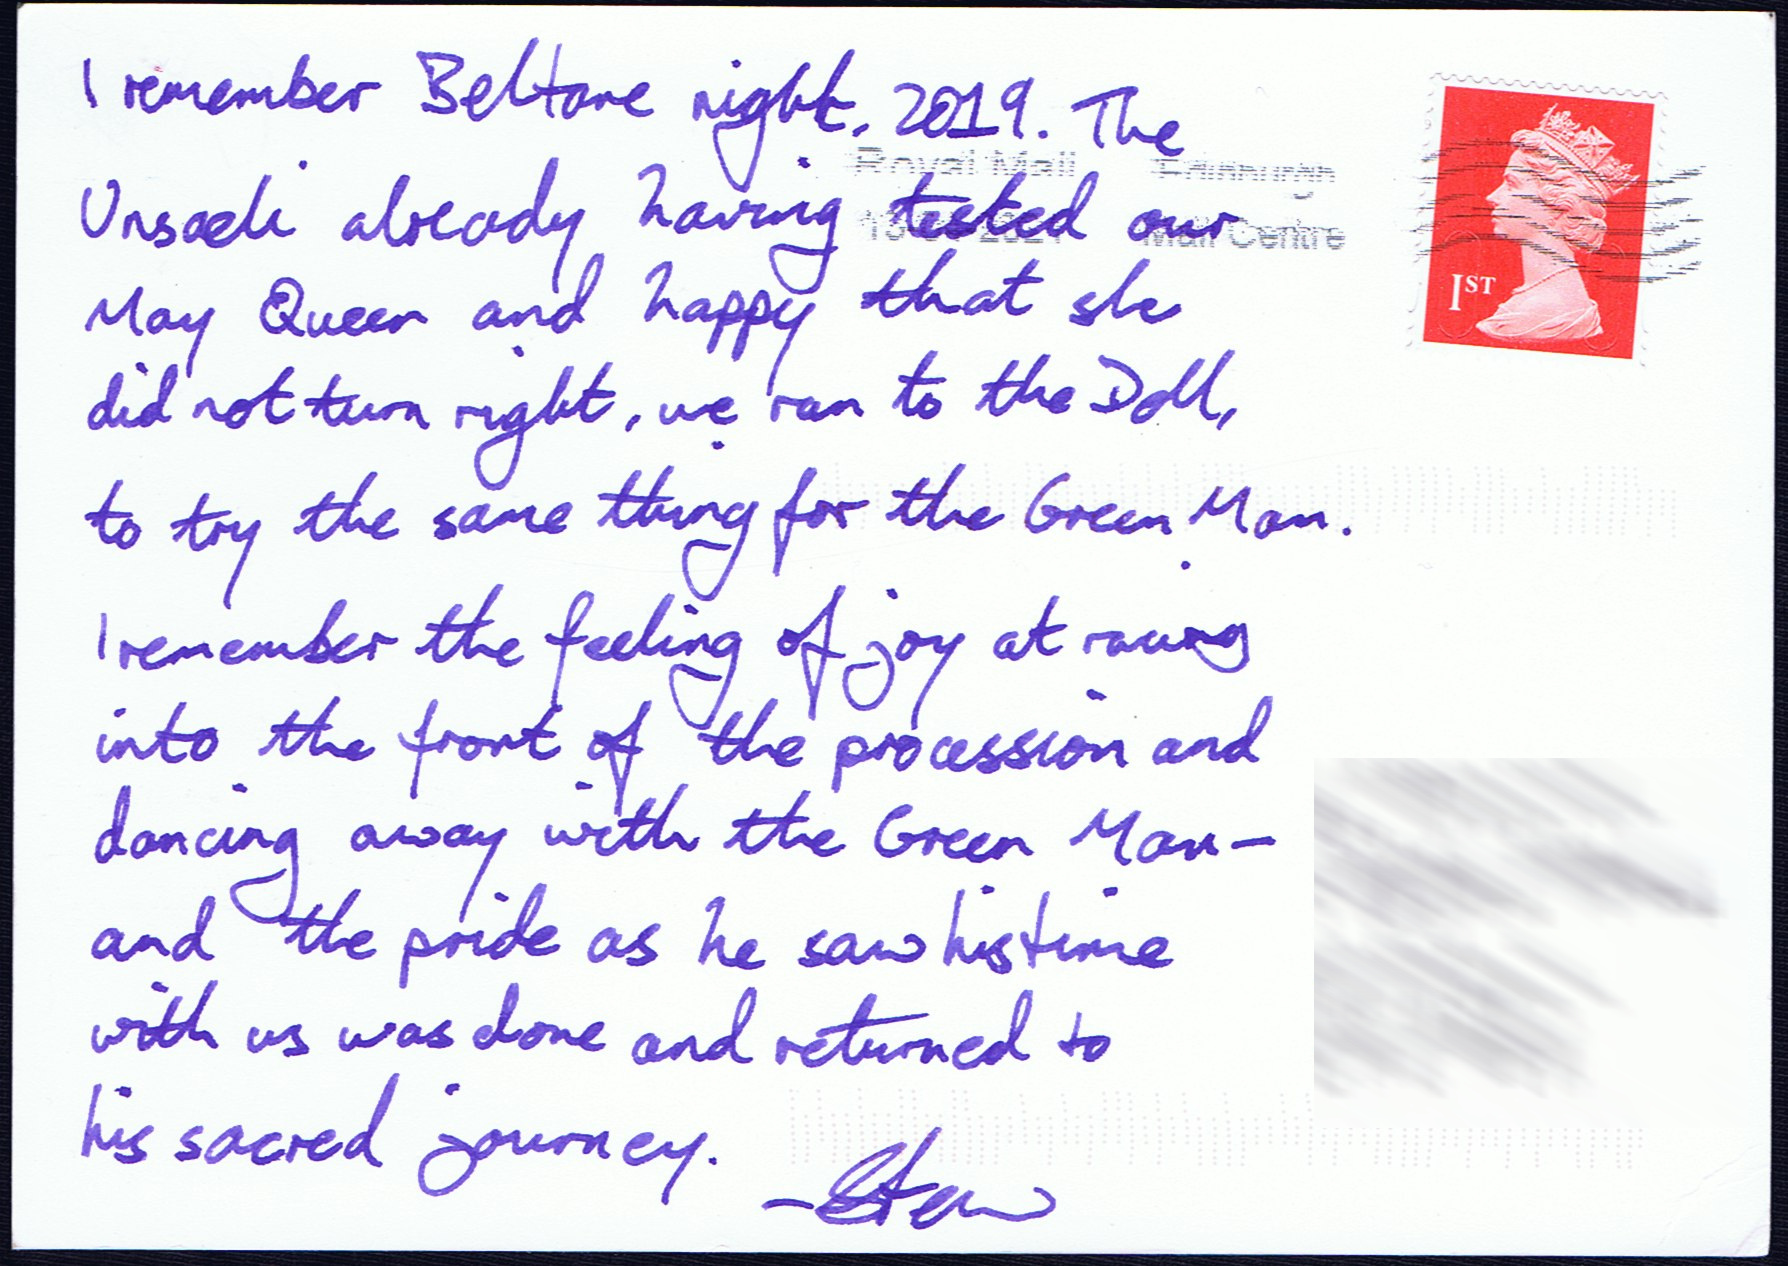 I remember Beltane night, 2019. The
Unsaeli already having tested our
May Queen and happy that she
did not turn right, we ran to the Doll,
to try the same thing for the Green Man.
I remember the feeling of joy at racing
into the front of the procession and
dancing away with the Green Man-
and the pride as he saw his time
with us was done and returned to
his sacred journey.
-Stew
Royal Mail Edinburgh
Mail Centre
1ST